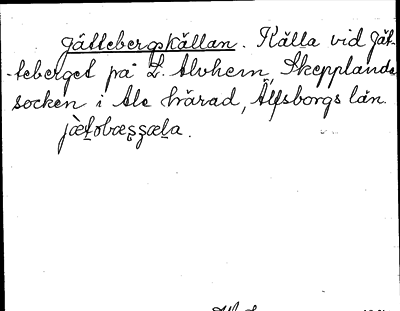 Jättebergskällan. Källa vid Jät-
-teberget på L. Alvhem, Skepplanda
socken i Ale härad, Älfsborgs län.